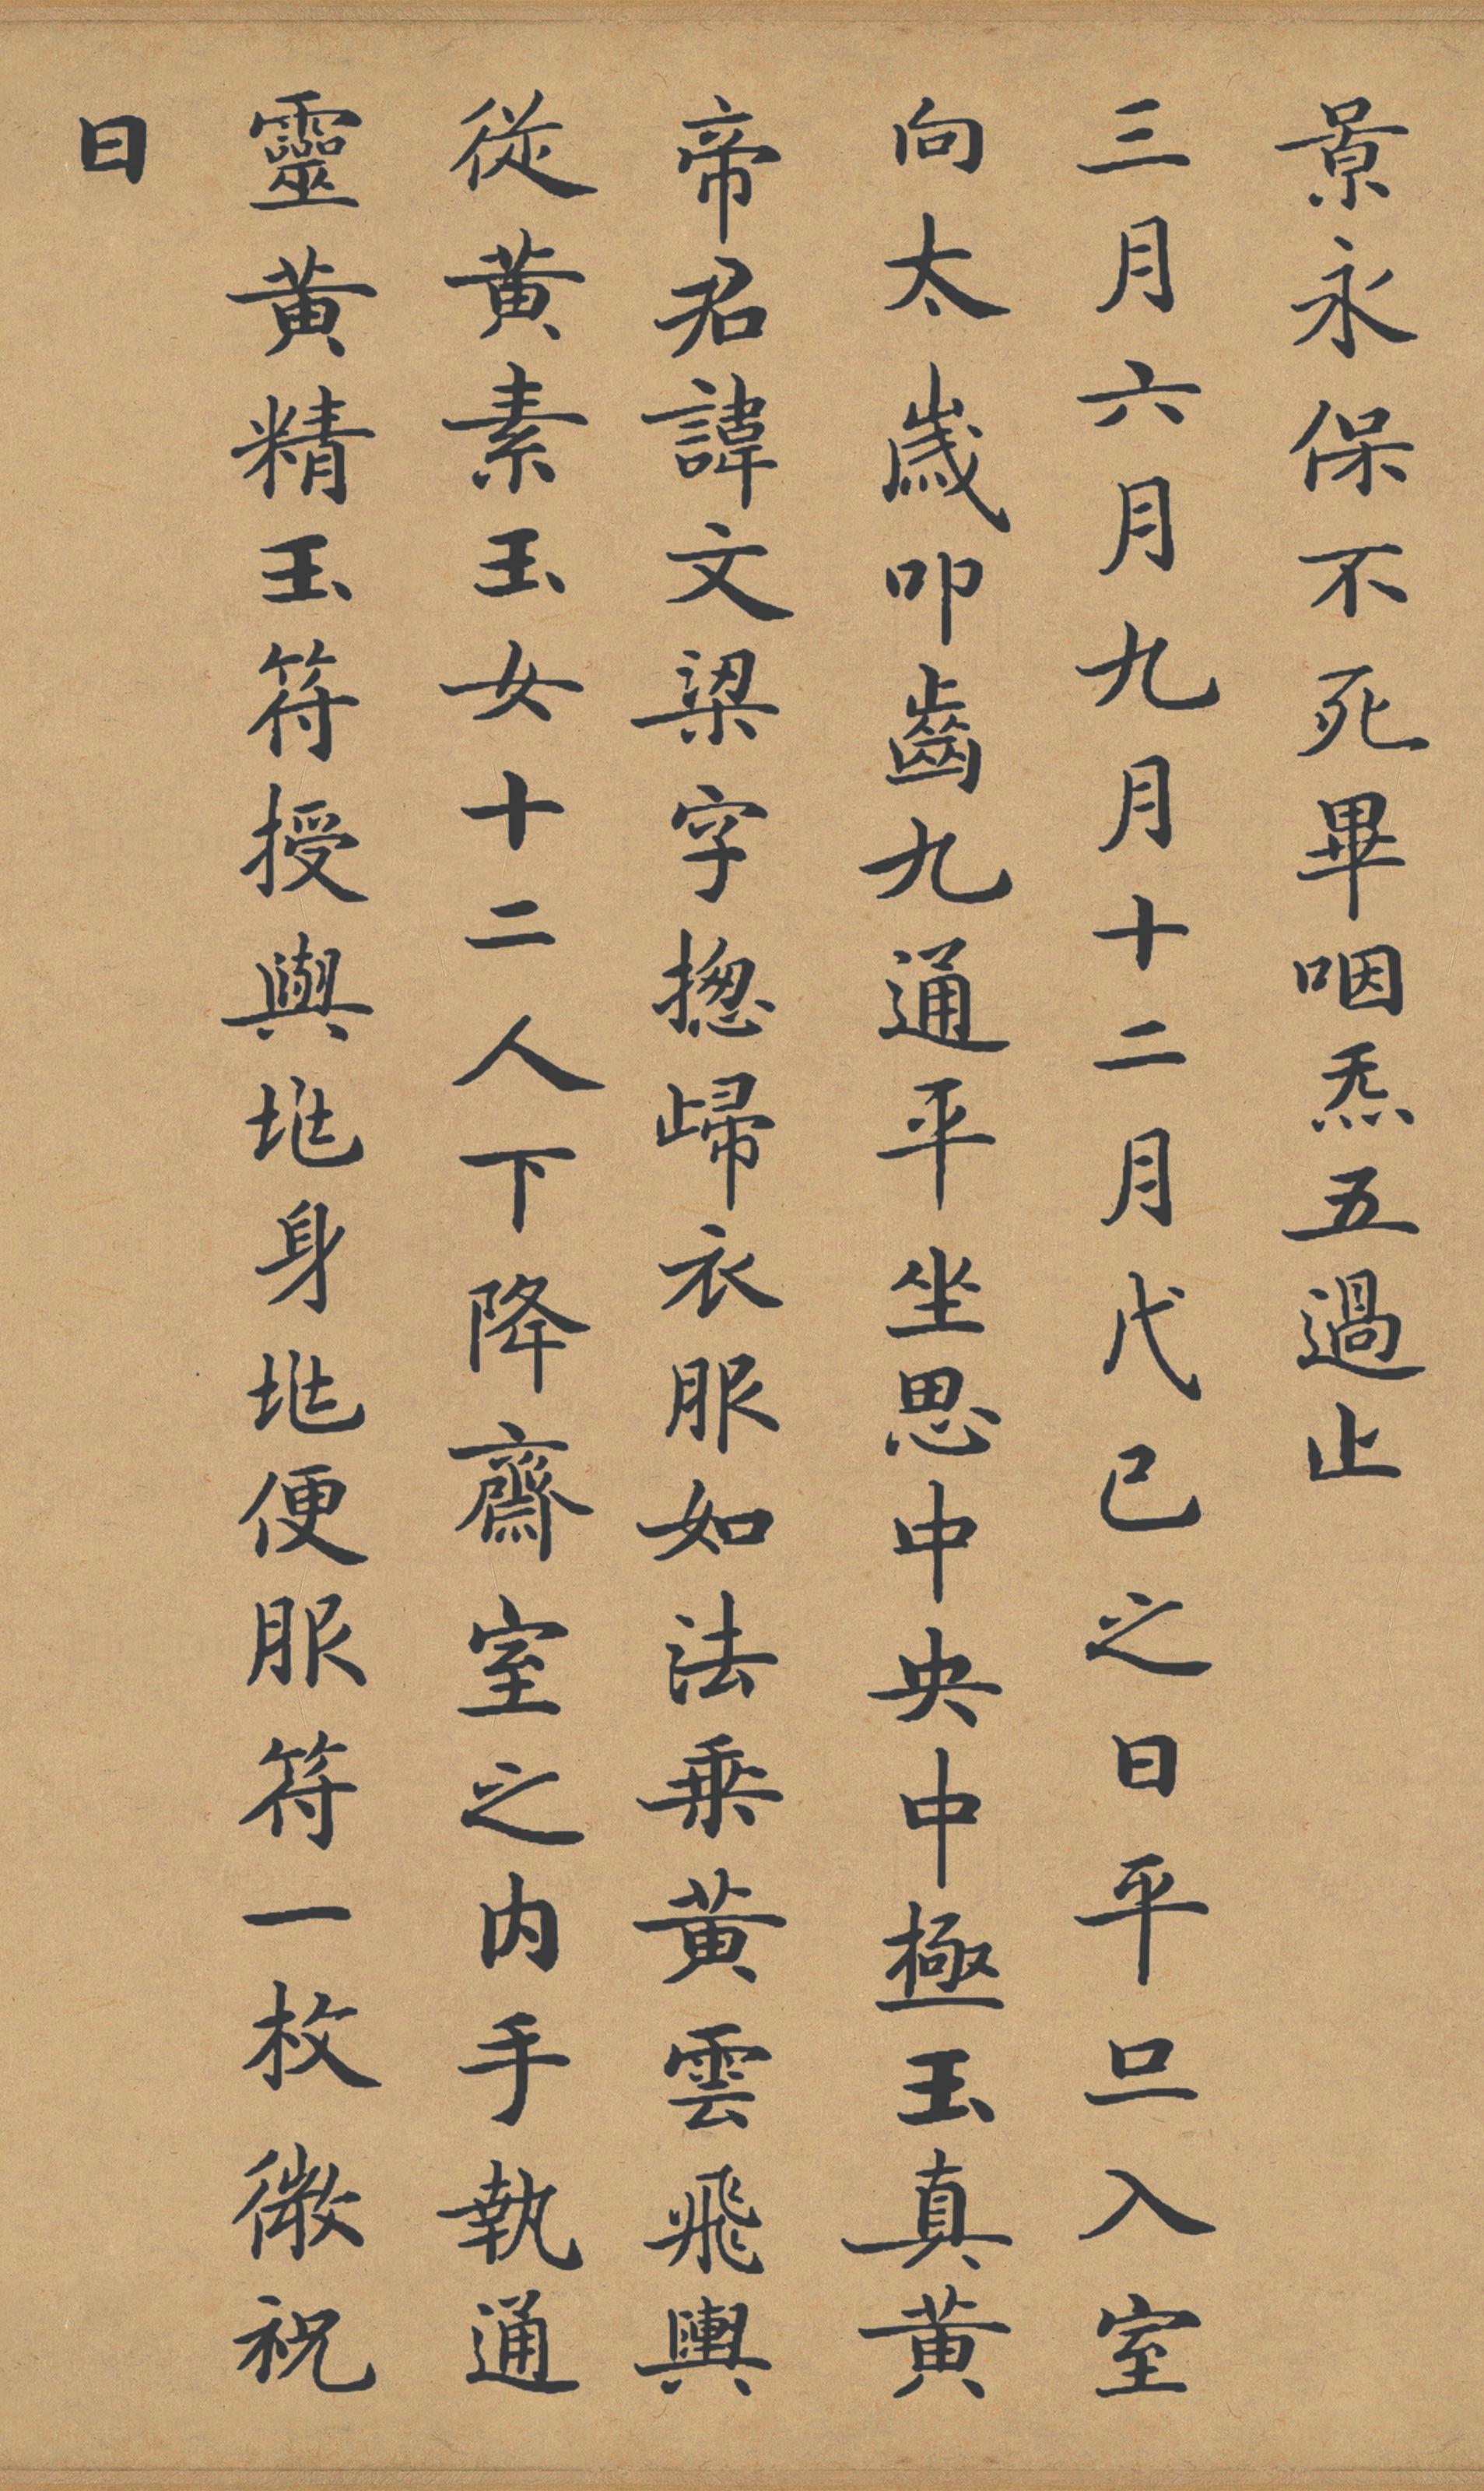 景永保不死畢咽炁五過止
三月六月九月十二月代己之日平旦入室
向太歲叩齒九通平坐思中央中極玉真黃
帝君諱文梁字揔歸衣服如法乘黃雲飛輿
從黃素玉女十二人下降齋室之內手執通
靈黃精玉符授與兆身兆便服符一枚微祝
曰